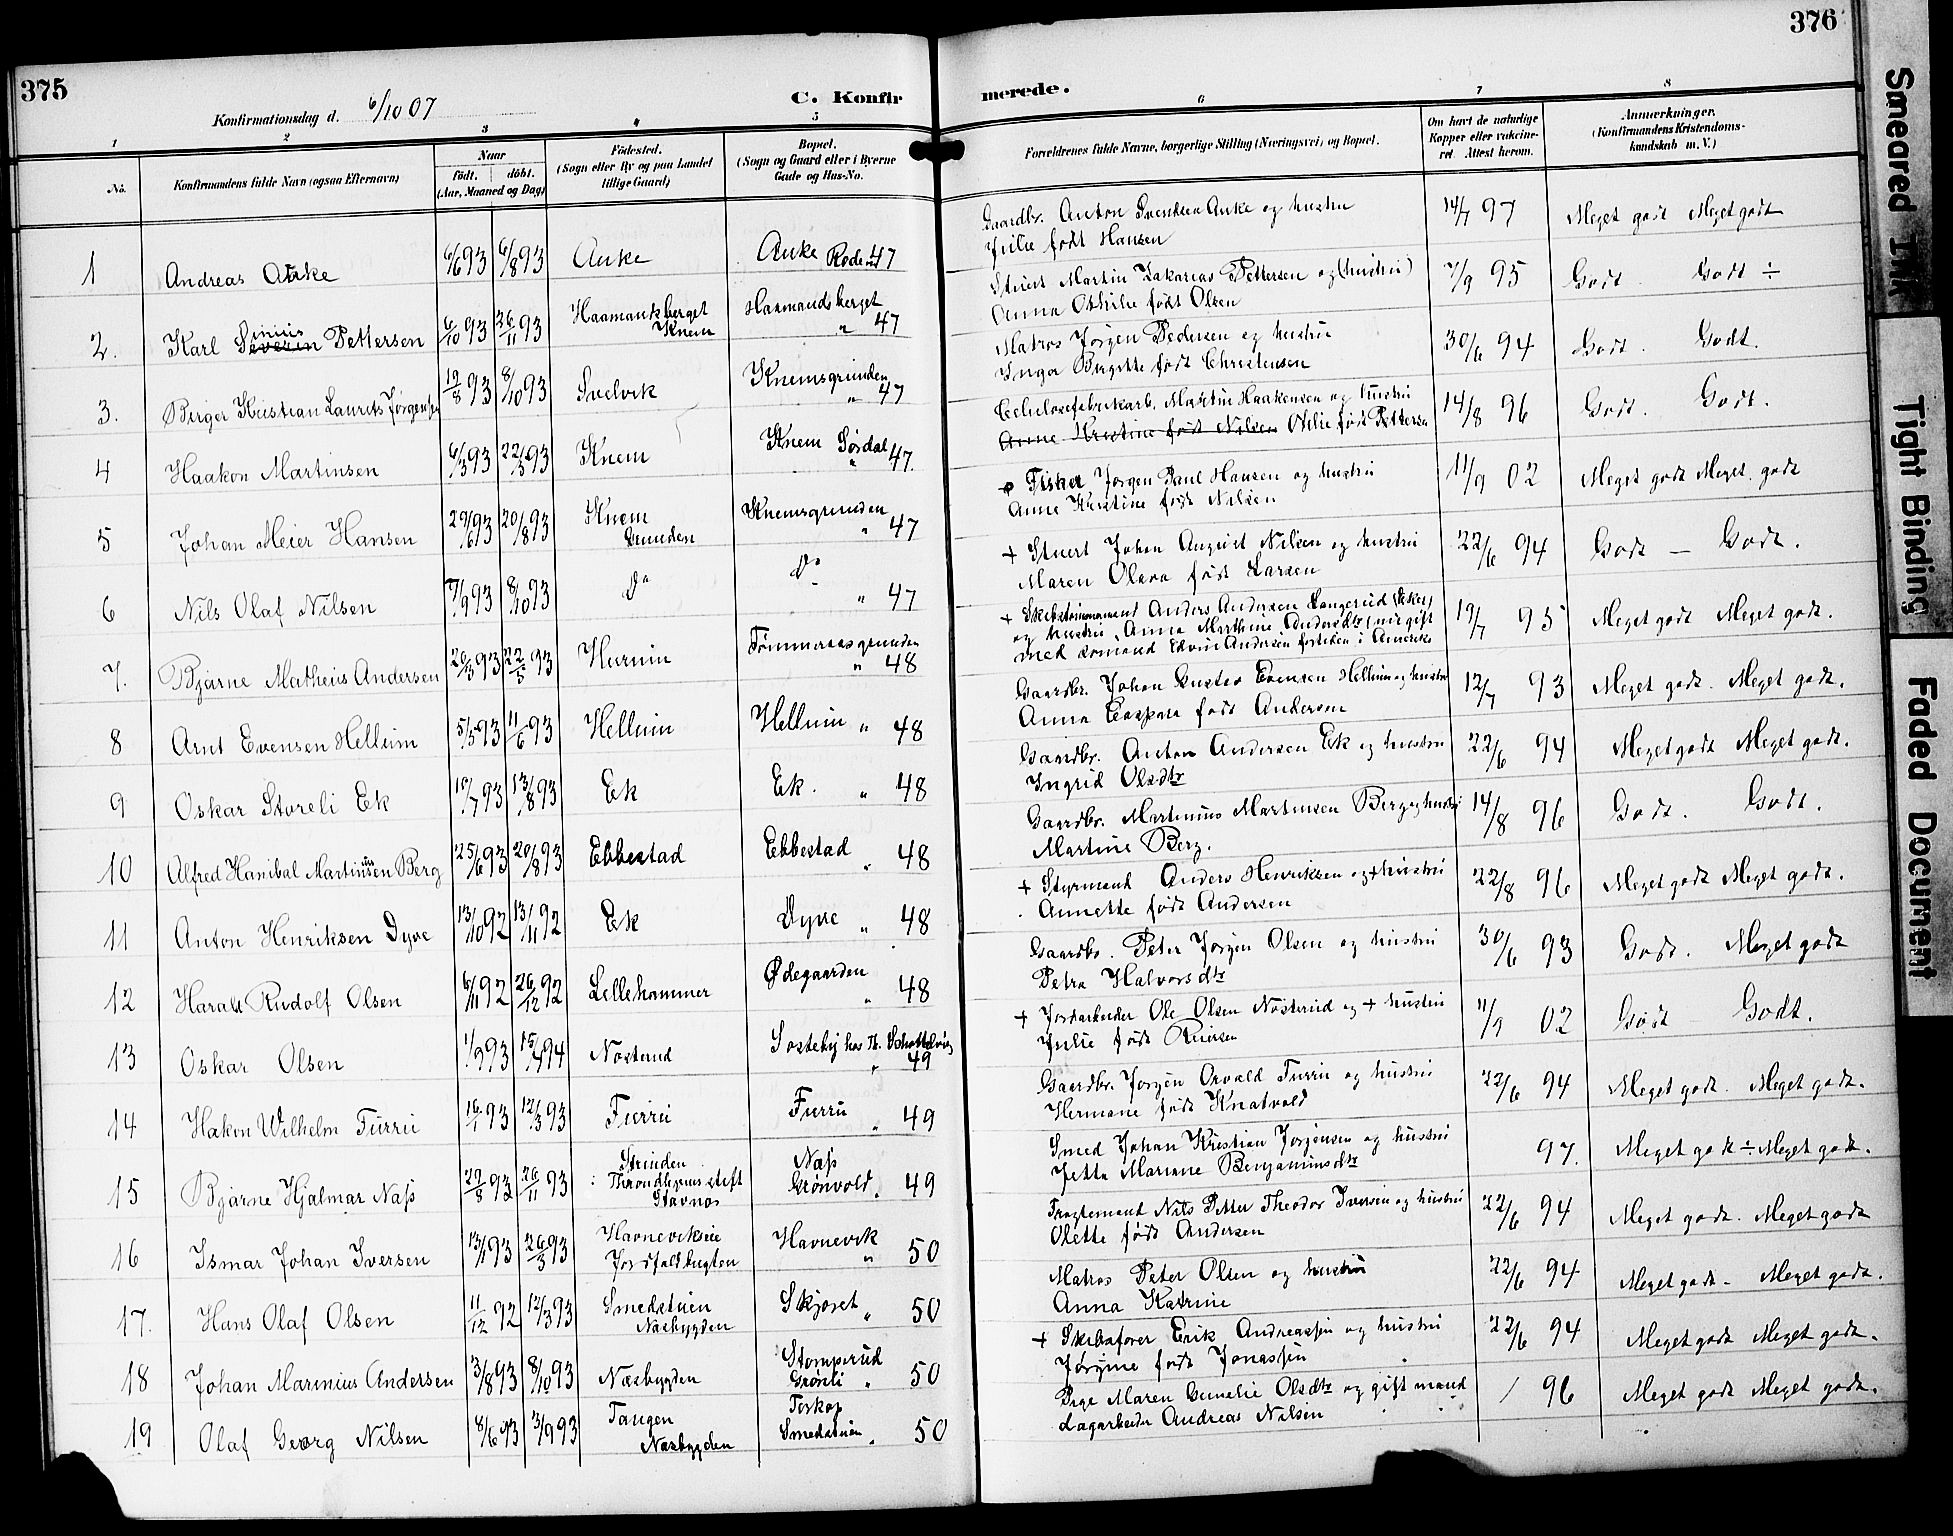 375
376
Konfirmationsdag d. 6/10 07
C. Konfir
merede.
1
2
3
4
5
6
7
8
No.
Konfirmandens fulde Navn (ogsaa Efternavn)
Naar
født. døbt.
(Aar, Maaned og Dag)
Fødested.
(Sogn eller By og paa Landet
tillige Gaard)
Bopæl.
(Sogn og Gaard eller i Byerne
Gade og Hus-No.
Forældrenes fulde Navne, borgerlige Stilling (Næringsvei) og Bopæl.
Om havt de naturlige
Kopper eller vakcine-
ret. Attest herom.
Anmærkninger.
(Konfirmandens Kristendoms-
kundskab m. V.)
1 Andreas Auke 6/6 93 6/8 93 Auke Auke Rode 47
Gaardbr. Anton Svendsen Auke og hustru
Julie født Hansen
14/7 97 Meget godt Meget godt
2. Karl Severin Sinius Pettersen 6/10 93 26/11 93 Haamandsberget Knem Haamandsberget " 47
Stuert Martin Zakarias Pettersen og (hustru)
Anna Othilie født Olsen
7/9 95 Godt . Godt ÷
3. Berger Kristian Laurits Jørgensen 12/8 93 8/10 93 Svelvik Knemsgrunden " 47
Matros Jørgen Pedersen og hustru
Inga Birgitte født Christensen
30/6 94 Godt . Godt.
4 Haakon Martinsen 6/3 93 22/5 93 Knem Knem Sørdal " 47.
Celulosefabrikarb. Martin Haakensen og hustru
Anne Kristine født Nilsen Otilie født Pettersen
14/8 96 Godt . Godt.
5 Johan Meier Hansen 29/6 93 20/8 93 Knem Grunden Knemsgrunden " 47
Fisker Jørgen Paul Hansen og hustru
Anne Kristine født Nilsen
11/9 02 Meget godt Meget godt
6 Nils Olaf Nilsen 7/9 93 8/10 93 do do " 47
+ Stuert Johan August Nilsen og hustru
Maren Olava født Larsen
22/6 94 Godt — Godt.
7. Bjarne Matheus Andersen 20/3 93 22/5 93 Hurum Tømmeraasgrunden " 48
+ Skibstømmermand Anders Andersen Langerud (Eker)
og hustru, Anna Marthine Andersdtr (nu gift
med Lomand Edvin Andersen for tiden i Amerika
19/7 95 Meget godt Meget godt.
8 Arnt Evensen Hellum 5/5 93 11/6 93 Hellum Hellum " 48
Gaardbr. Johan Gustav Evensen Hellum og hustru
Anna Caspara født Andersen
12/7 93 Meget godt. Meget godt.
9 Oskar Storeli Ek 10/7 93 13/8 93 Ek Ek. " 48
Gaardbr. Anton Andersen Ek og hustru
Ingrid Olsdtr
22/6 94 Meget godt Meget godt.
10 Alfred Hanibal Martinsen Berg 25/6 93 20/8 93 Ebbestad Ebbestad " 48
Gaardbr. Martinius Martinsen Berg og hustru
Martine Berg.
14/8 96 Godt. Godt.
11 Anton Henriksen Dyve 13/10 92 13/11 92 Ek Dyve " 48
+ Styrmand Anders Henriksen og + hustru
Annette født Andersen
22/8 96 Meget godt Meget godt.
12 Harald Rudolf Olsen 6/11 92 26/12 92 Lillehammer Ødegaarden " 48
Gaardbr. Peter Jørgen Olsen og hustru
Petra Halvorsdtr
30/6 93 Godt. Meget godt
13 Oskar Olsen 1/9 93 15/4 94 Nøsterud Sosteby hos H. " 49
+ Jordarbeider Ole Olsen Nøsterud og + hustru
Julie født Reiersen
11/9 02 Godt Godt.
14 Hakon Wilhelm Furru 16/1 93 12/3 93 Furru Furru " 49
Gaardbr. Jørgen Orvald Furru og hustru
Hermane født Knatvold
22/6 94 Meget godt. Meget godt.
15 Bjarne Hjalmar Næss 27/8 93 26/11 93 Strinden Throndhjems stift Stavnæs Næss Grønvold " 49
Smed Johan Kristian Jørgensen og hustru
Jetta Mariane Benjaminsdtr
97. Meget godt ÷ Meget godt.
16 Ismar Johan Iversen 13/1 93 26/3 93 Havneviksøie Jordfaldbugten Havnevik " 50
Fragtemand Nils Petter Theodor Iversen og hustru
Olette født Andersen
22/6 94 Meget godt. Meget godt
17. Hans Olaf Olsen 11/12 92 12/3 93 Smedstuen Næsbygden Skjøret " 50
Matros Peter Olsen og hustru
Anna Katrine
22/6 94 Meget godt - Meget godt.
18 Johan Marinius Andersen 3/8 93 8/10 93 Næsbygden Stomperud Grønli " 50
+ Skibsfører Erik Andreassen og hustru
Jørgine født Jonassen
22/6 94 Meget godt Meget godt.
19 Olaf Georg Nilsen 8/6 93 3/9 93 Tangen Næsbygden Torkop Smedstuen " 50
Pige Maren Gunelie Olsdtr og gift mand
Lagarbeider Andreas Nilsen
/ 96 Meget godt Meget godt.
Smeared Ink
Tight Binding
Faded Document